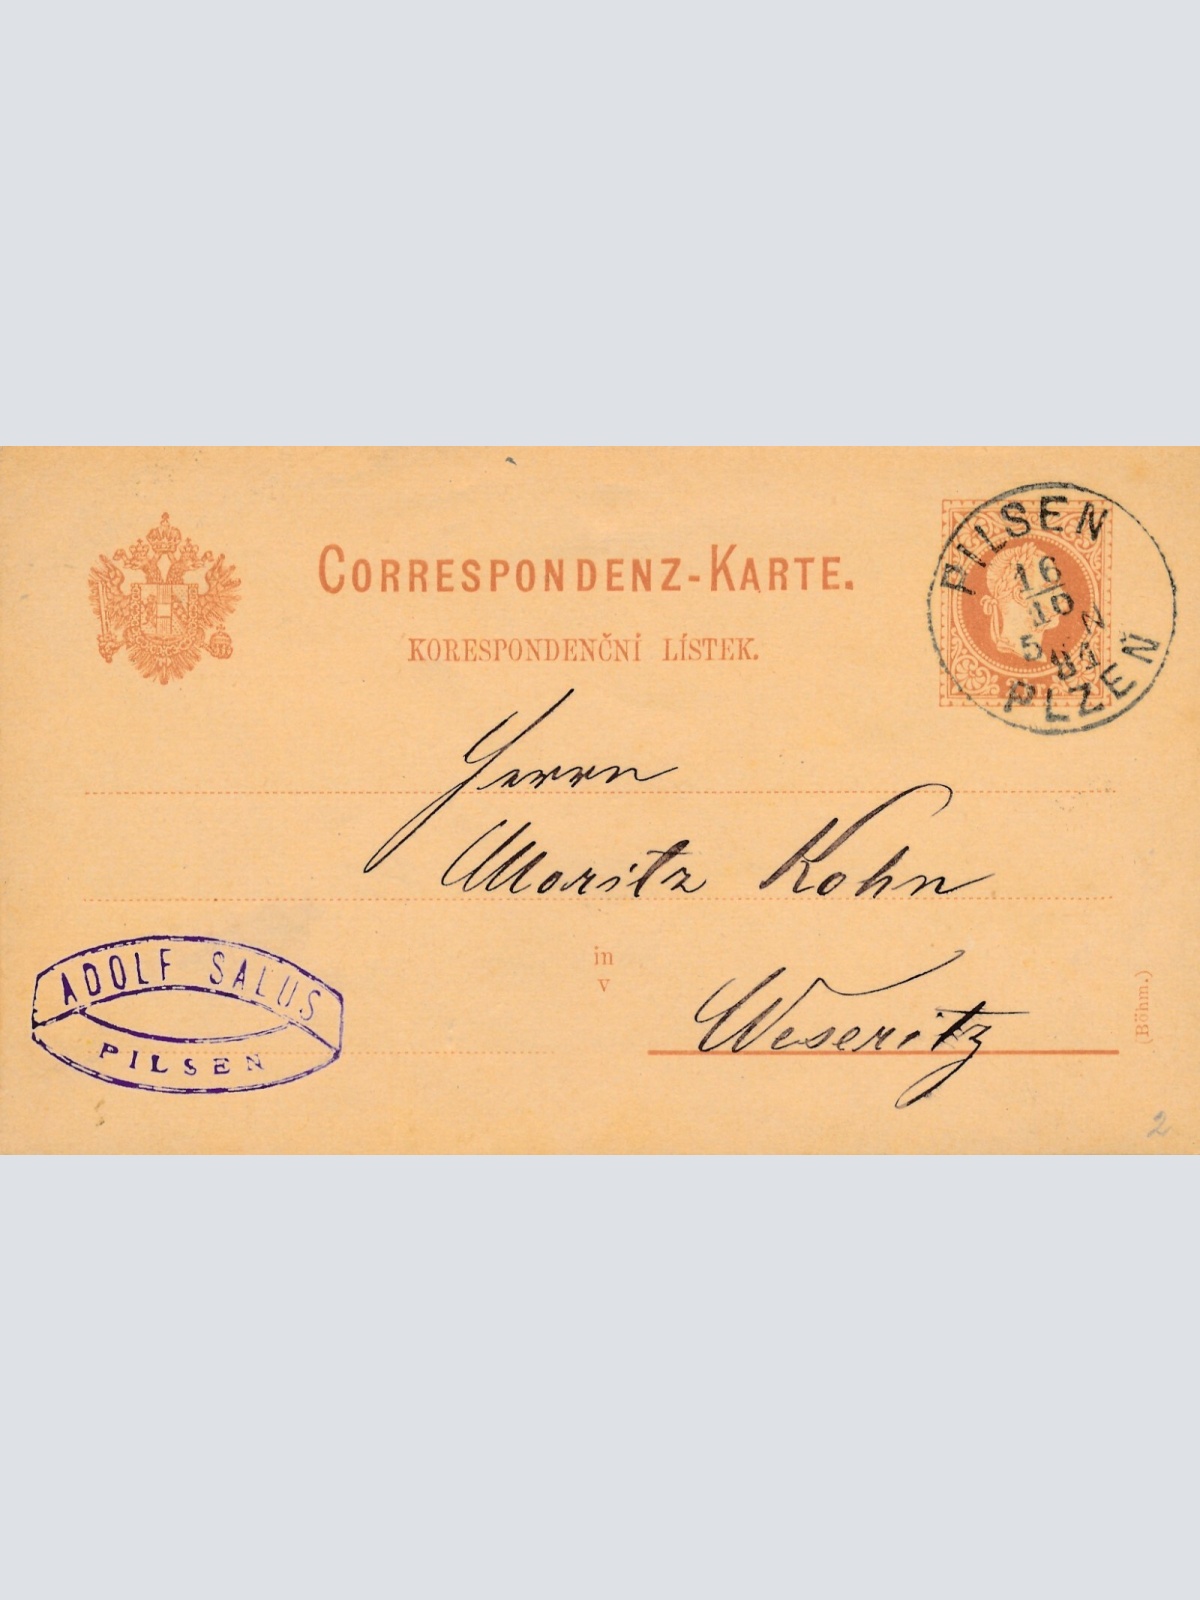 CORRESPONDENZ-KARTE.
KORESPONDENČNÍ LÍSTEK.
PILSEN
16
10
5 N
81
PLZEŇ
Herrn
Moritz Kohn
in
v
Weseritz
ADOLF SALUS
PILSEN
(Böhm.)
2